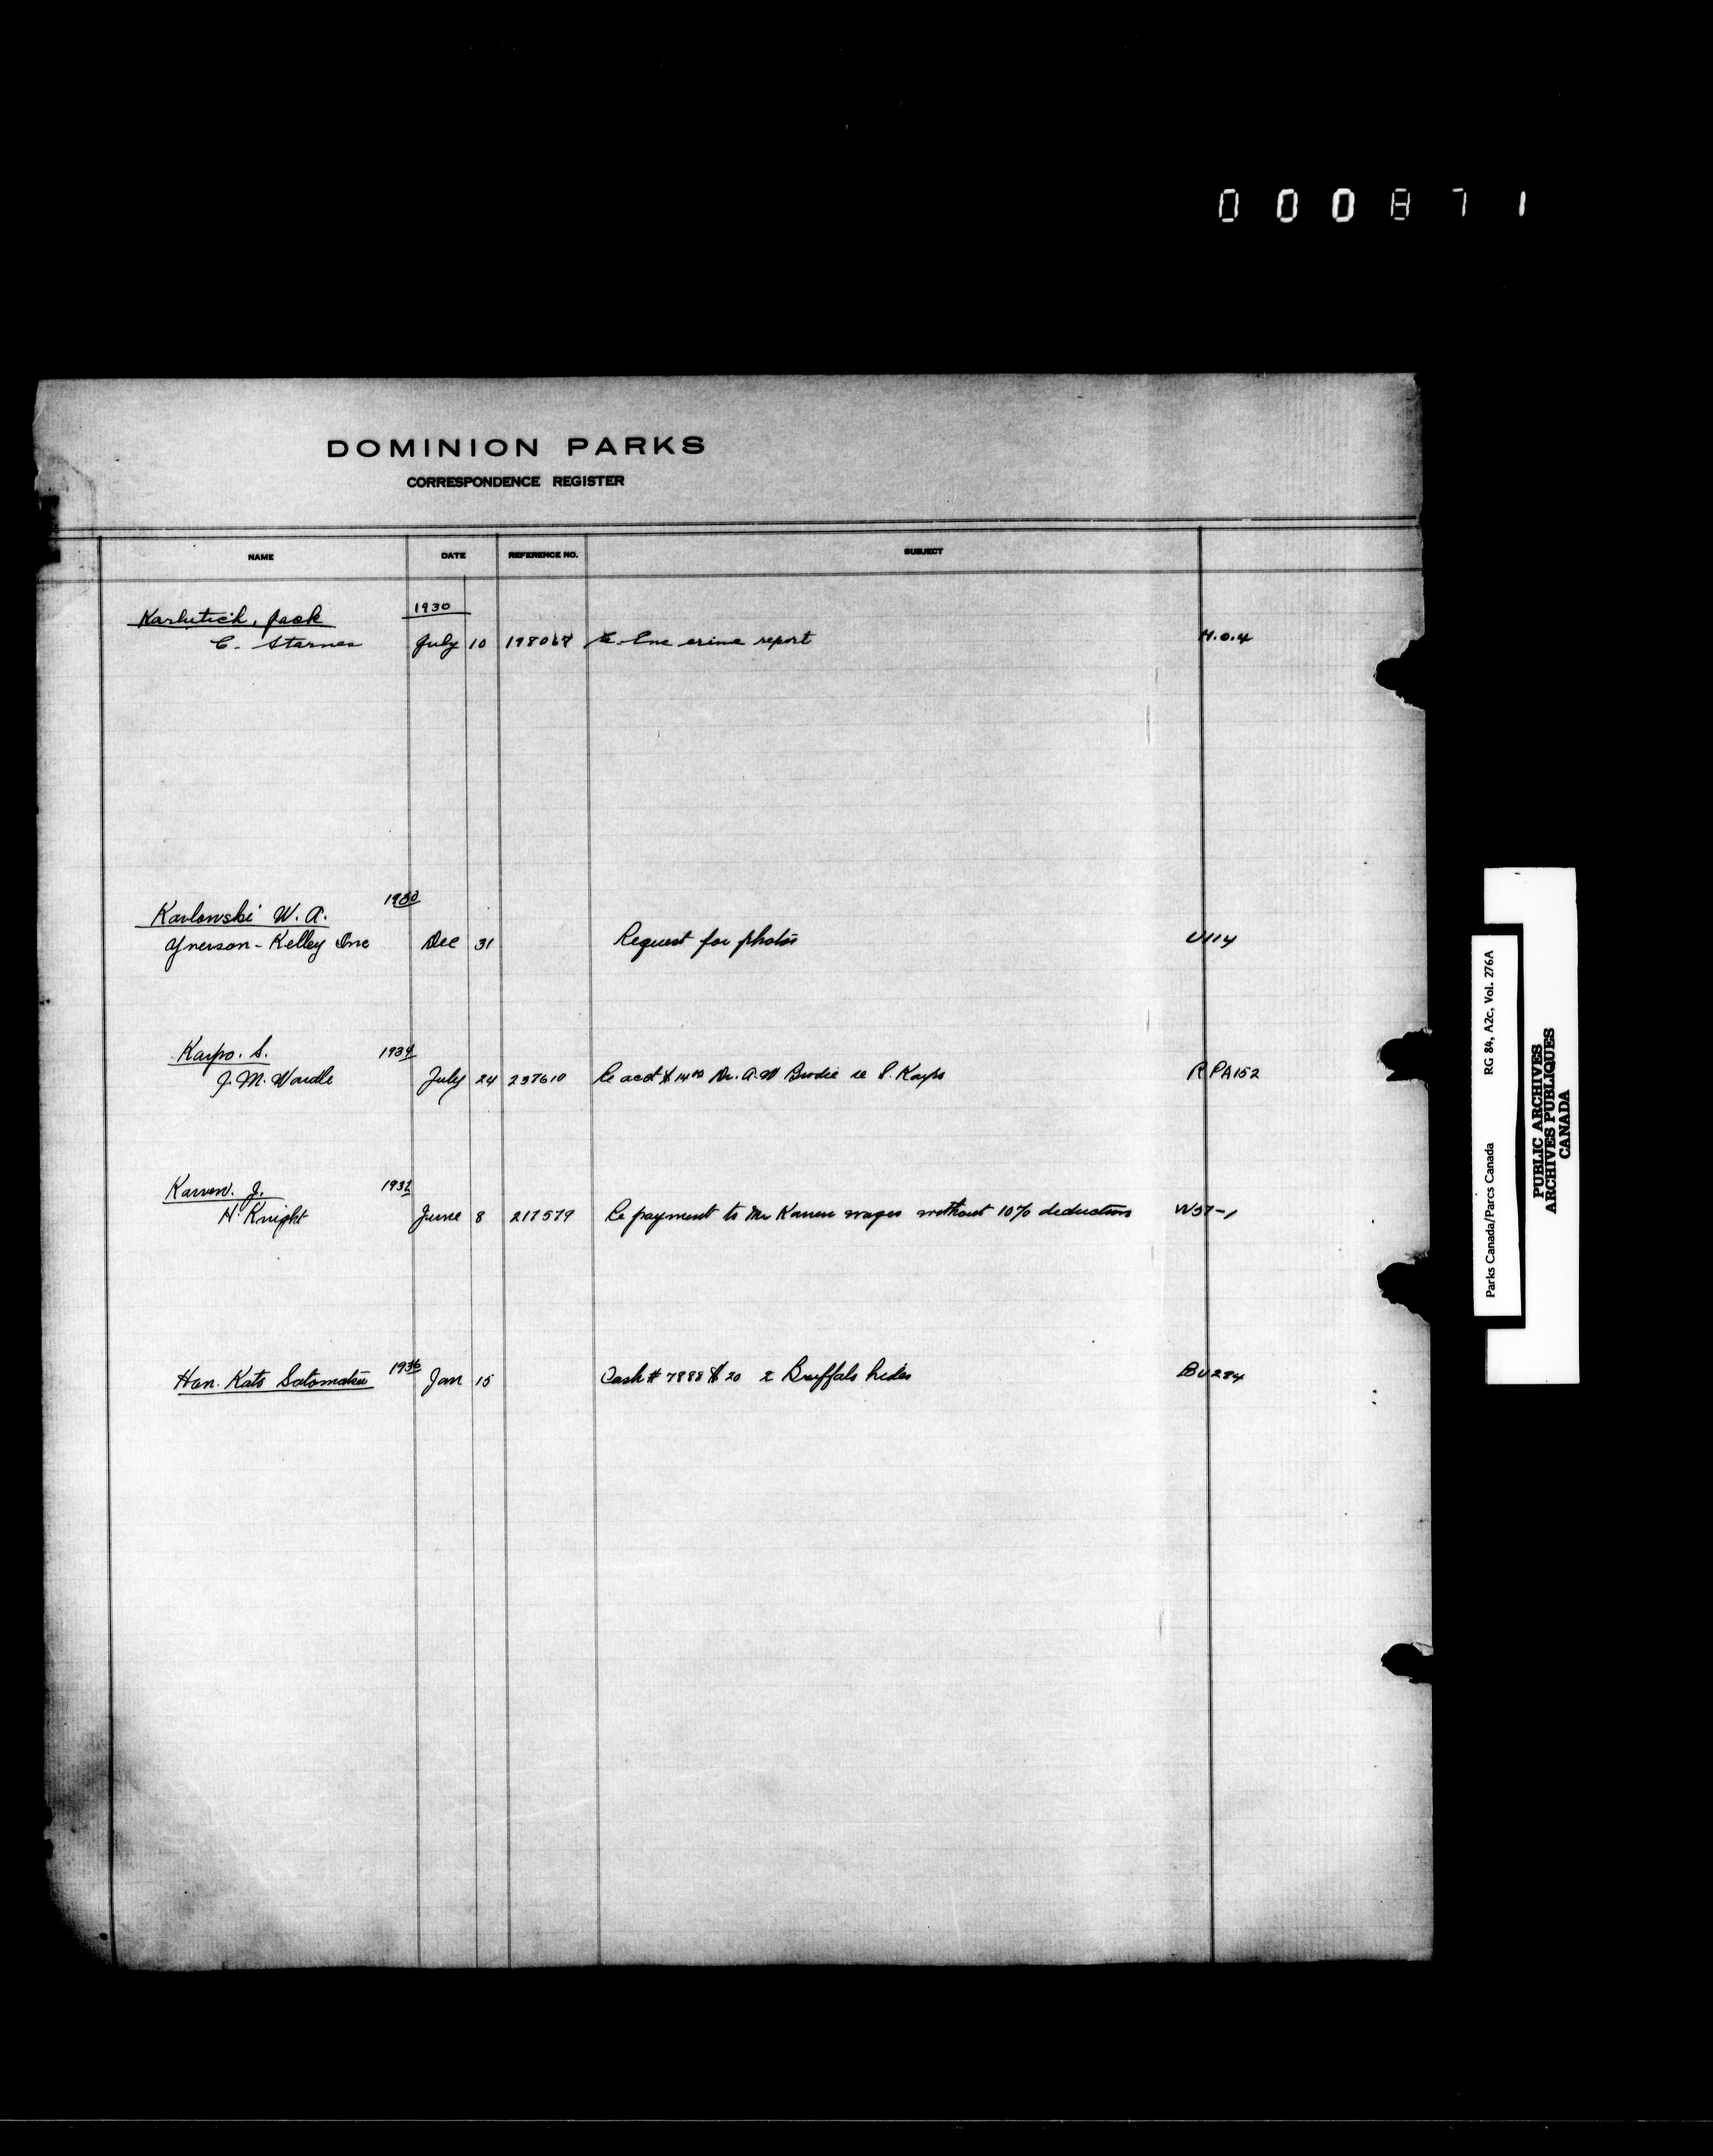 0 0 0 8 7 1
DOMINION PARKS
CORRESPONDENCE REGISTER
NAME DATE REFERENCE NO. SUBJECT
1930
Karlutich, Jack
C. Starnes July 10 198067 Enc crime report H.O.4
1930
Karlowski W. A.
Ynerson-Kelley Inc Dec 31 Request for photos U114
Karpo. S. 1934
J.M. Wardle July 24 237610 Re acct $14 Dr. A.W Brodie re S. Karpo RPA152
Karren. J. 1932
H. Knight June 8 217579 Re payment to Mr Karren wages without 10% deductions W57-1
Hon. Kato Sotomatsu 1936 Jan 15 Cash # 7888 $20 2 Buffalo hides BU284
Parks Canada/Parcs Canada RG 84, A2c, Vol. 276A
PUBLIC ARCHIVES
ARCHIVES PUBLIQUES
CANADA